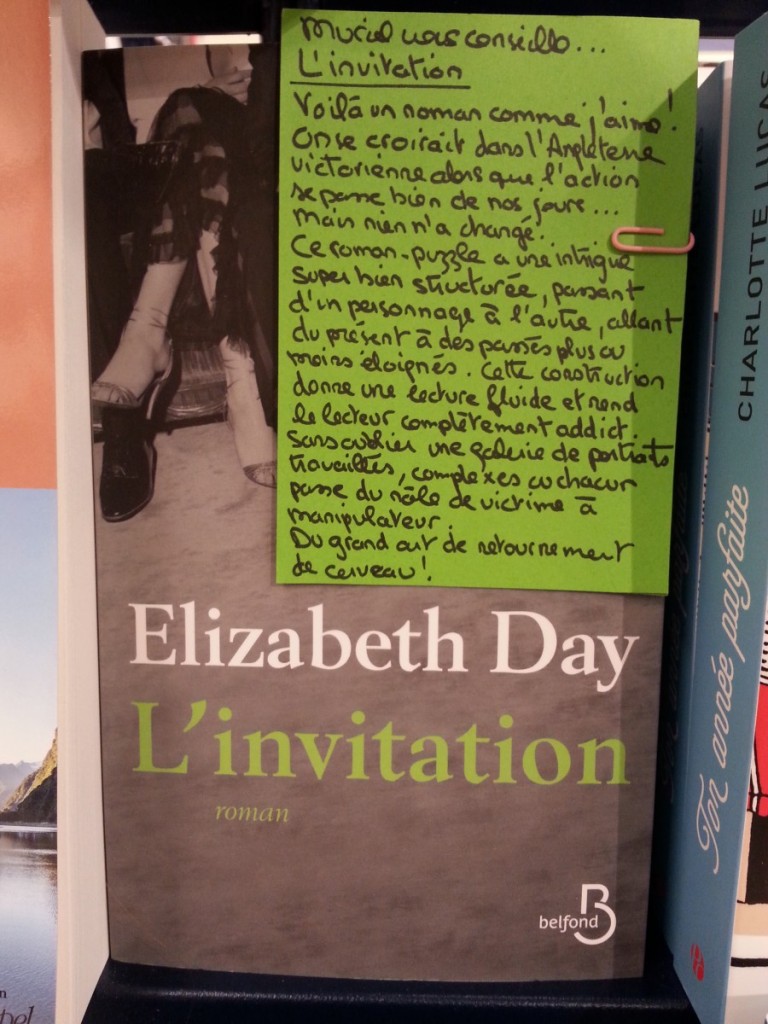 Muriel vous conseille...
L'invitation
Voilà un roman comme j'aime !
On se croirait dans l'Angleterre
victorienne alors que l'action
se passe bien de nos jours...
Mais rien n'a changé.
Ce roman-puzzle a une intrigue
super bien structurée, passant
d'un personnage à l'autre, allant
du présent à des passés plus ou
moins éloignés. Cette construction
donne une lecture fluide et rend
le lecteur complètement addict.
Sans oublier une galerie de portraits
travaillés, complexes où chacun
passe du rôle de victime à
manipulateur.
Du grand art de retournement
de cerveau !
Elizabeth Day
L'invitation
roman
belfond
CHARLOTTE LUCAS
Ton année parfaite